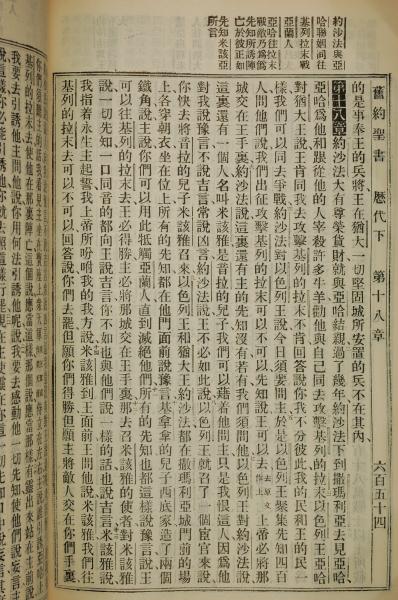 約沙法與亞
哈聯姻同往
基列拉末戰
亞蘭人
亞哈往拉末
戰敵乃爲爲
先知所誘陣
亡於彼正如
先知米該亞
所言
舊約聖書
歷代下
第十八章
六百五十四
的是事奉王的兵將王在猶大一切堅固城所安置的兵不在其內
第十八章約沙法大有尊榮貨財就與亞哈結親過了幾年約沙法下到撒瑪利亞去見亞哈
亞哈爲他和跟從他的人宰殺許多牛羊勸他與自己同去攻擊基列的拉末以色列王亞哈
對猶大王約沙法說你肯同我去攻擊基列的拉末不肯回答說你我不分彼此我的民和王的民一
樣我們可以同去爭戰約沙法對以色列王說今日須要問主於是以色列王聚集先知四百
人問他們說我們出征攻擊基列的拉末可以不可以先知說王可以去上帝必將那
城交在王手裏約沙法說這裏還有主的先知沒有若有我們須問他以色列王對約沙法說
這裏還有一個人名叫米該雅是音拉的兒子我們可以藉着他問主只是我恨這人因爲他
對我說豫言不說吉言常說凶言約沙法說王不必如此說以色列王就召了一個宦官來說
你快去將音拉的兒子米該雅召來以色列王和猶大王約沙法都在撒瑪利亞城門前的場
上各穿朝衣坐在位上所有的先知都在他們面前說豫言基拿拿的兒子西底家造了兩個
鐵角說主說你們可以用此牴觸亞蘭人直到滅絕他們所有的先知也都這樣說豫言說王
可以往基列的拉末去王必得勝主必將那城交在王手裏那去召米該雅的使者對米該雅
說一切先知一口同音的都向王說吉言你不如也與他們說一樣的話也說吉言米該雅說
我指着永生主起誓我上帝所吩咐我的我方說米該雅到王面前王問他說米該雅我們往
基列的拉末去可以不可以回答說你們去罷但願你們得勝但願主將敵人交在你們手裏